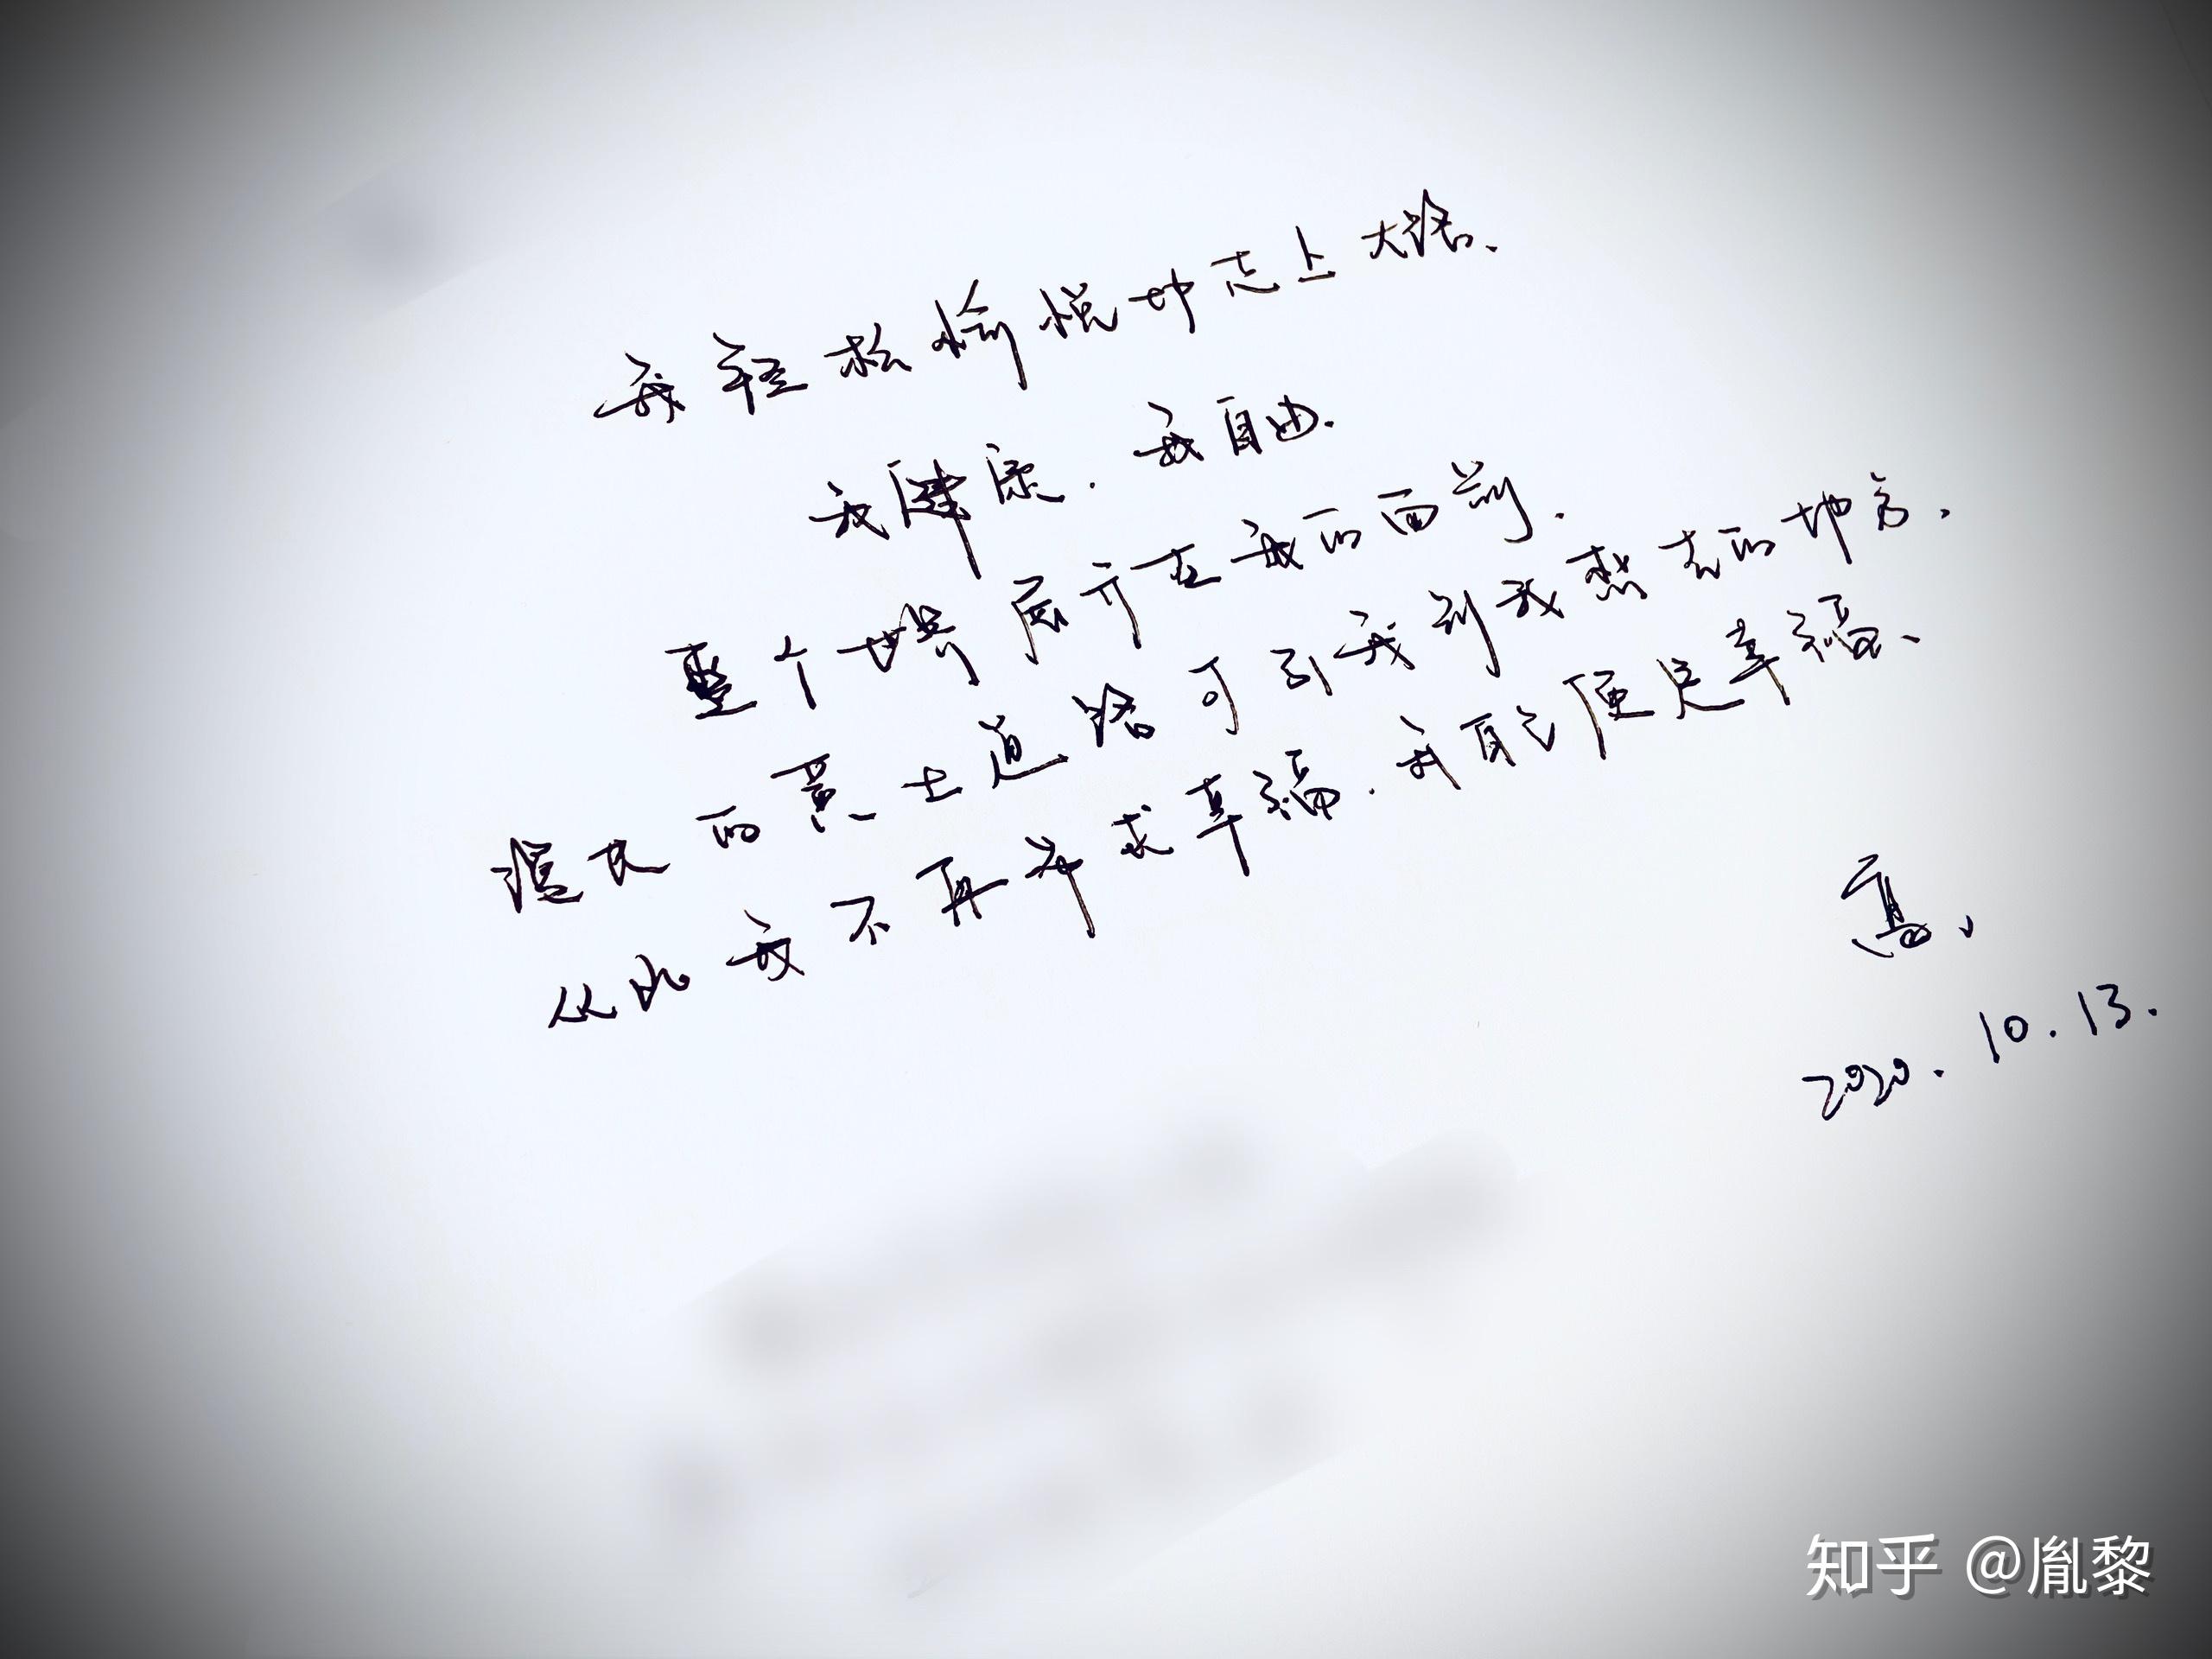 我轻松愉悦地走上大路、
我健康.我自由.
整个世界展开在我的面前.
漫长的黄土道路可引我到我想去的地方.
从此我不再希求幸福.我自己便是幸福、
2020.10.13.
知乎 @胤黎